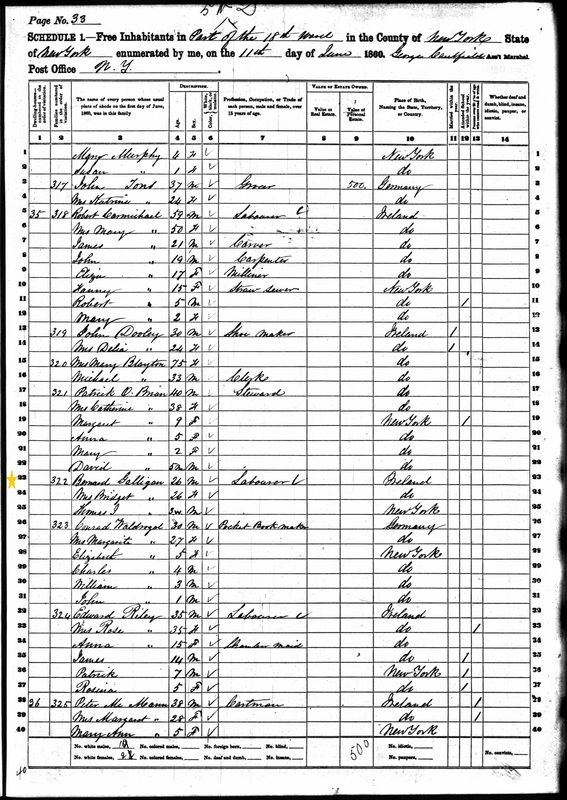 5th D
Page No. 33
SCHEDULE 1.—Free Inhabitants in Part of the 18th Ward in the County of New York State
of New York enumerated by me, on the 11th day of June 1860. George Caulfield Ass't Marshal.
Post Office N. Y.
DESCRIPTION. VALUE OF ESTATE OWNED.
The name of every person whose usual place of abode on the first day of June, 1860, was in this family
Age. Sex.
Profession, Occupation, or Trade of each person, male and female, over 15 years of age.
Value of Real Estate. Value of Personal Estate.
Place of Birth, Naming the State, Territory, or Country.
Whether deaf and dumb, blind, insane, idiotic, pauper, or convict.
1 2 3 4 5 6 7 8 9 10 11 12 13 14
1 Mary Murphy 4 f New York
2 Susan " 1 f do
3 317 John Tons 37 m Grocer 500 Germany
4 Mrs Katrine " 24 f do
5 35 318 Robert Carmichael 59 m Labourer Ireland
6 Mrs Mary " 50 f do
7 James " 21 m Carver do
8 John " 19 m Carpenter do
9 Eliza " 17 F Milliner do
10 Fanny " 15 F Straw sewer New York
11 Robert " 5 m do 1
12 Mary " 2 f do
13 319 John Dooley 30 m Shoe maker Ireland 1
14 Mrs Delia " 24 f do 1
15 320 Mrs Mary Blayton 75 f do
16 Michael " 33 m Clerk do
17 321 Patrick O. Brian 40 m Steward do
18 Mrs Catherine " 38 f do
19 Margaret " 9 F New York 1
20 Anna " 5 F do
21 Mary " 2 F do
22 David " 5m m do
23 322 Bernard Galligan 26 m Labourer Ireland
24 Mrs Bridget " 26 f do
25 Thomas J " m New York
26 323 Conrad Waldvogal 30 m Pocket Book maker Germany
27 Mrs Margarite " 27 f do
28 Elizabeth " 5 f New York
29 Charles " 4 m do
30 William " 3 m do
31 John " 1 m do
32 324 Edward Riley 35 m Labourer Ireland
33 Mrs Rose " 35 f do 1
34 Anna " 15 F Chamber maid do
35 James " 14 m do 1
36 Patrick " 7 m New York 1
37 Rosina " 5 F do 1
38 36 325 Peter Mc Mann 38 m Cartman Ireland 1
39 Mrs Margaret " 28 F do 1
40 Mary Ann " 5 F New York
No. white males, No. colored males, No. foreign born, No. blind, No. idiotic,
No. white females, No. colored females, No. deaf and dumb, No. insane, 500 No. paupers, No. convicts,
40